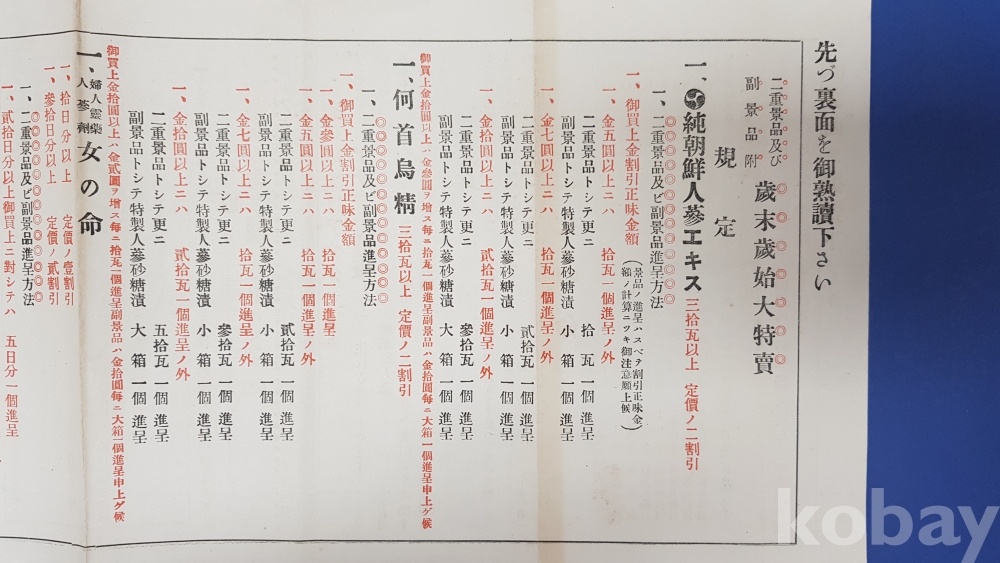 先づ裏面を御熟讀下さい
二重景品及び
副景品附
歲末歲始大特賣
規定
一、純朝鮮人蔘エキス 三拾瓦以上 定價ノ二割引
(景品ノ進呈ハスベテ割引正味金
額ノ計算ニツキ御注意願上候)
一、二重景品及ビ副景品進呈方法
一、御買上金割引正味金額
一、金五圓以上ニハ 拾瓦一個進呈ノ外
二重景品トシテ更ニ 拾瓦一個進呈
副景品トシテ特製人蔘砂糖漬 小箱一個進呈
一、金七圓以上ニハ 拾瓦一個進呈ノ外
二重景品トシテ更ニ 貳拾瓦一個進呈
副景品トシテ特製人蔘砂糖漬 小箱一個進呈
一、金拾圓以上ニハ 貳拾瓦一個進呈ノ外
二重景品トシテ更ニ 參拾瓦一個進呈
副景品トシテ特製人蔘砂糖漬 大箱一個進呈
御買上金拾圓以上ハ金參圓ヲ增ス每ニ拾瓦一個進呈副景品ハ金拾圓每ニ大箱一個進呈申上グ候
一、何首烏精 三拾瓦以上 定價ノ二割引
一、二重景品及ビ副景品進呈方法
一、御買上金割引正味金額
一、金參圓以上ニハ 拾瓦一個進呈
一、金五圓以上ニハ 拾瓦一個進呈ノ外
二重景品トシテ更ニ 貳拾瓦一個進呈
副景品トシテ特製人蔘砂糖漬 小箱一個進呈
一、金七圓以上ニハ 拾瓦一個進呈ノ外
二重景品トシテ更ニ 參拾瓦一個進呈
副景品トシテ特製人蔘砂糖漬 小箱一個進呈
一、金拾圓以上ニハ 貳拾瓦一個進呈ノ外
二重景品トシテ更ニ 五拾瓦一個進呈
副景品トシテ特製人蔘砂糖漬 大箱一個進呈
御買上金拾圓以上ハ金貳圓ヲ增ス每ニ拾瓦一個進呈副景品ハ金拾圓每ニ大箱一個進呈申上グ候
一、婦人靈藥
人蔘劑
女の命
一、拾日分以上 定價ノ壹割引
一、參拾日分以上 定價ノ貳割引
一、二重景品及ビ副景品進呈方法
一、貳拾日分以上御買上ニ對シテハ 五日分一個進呈
kobay